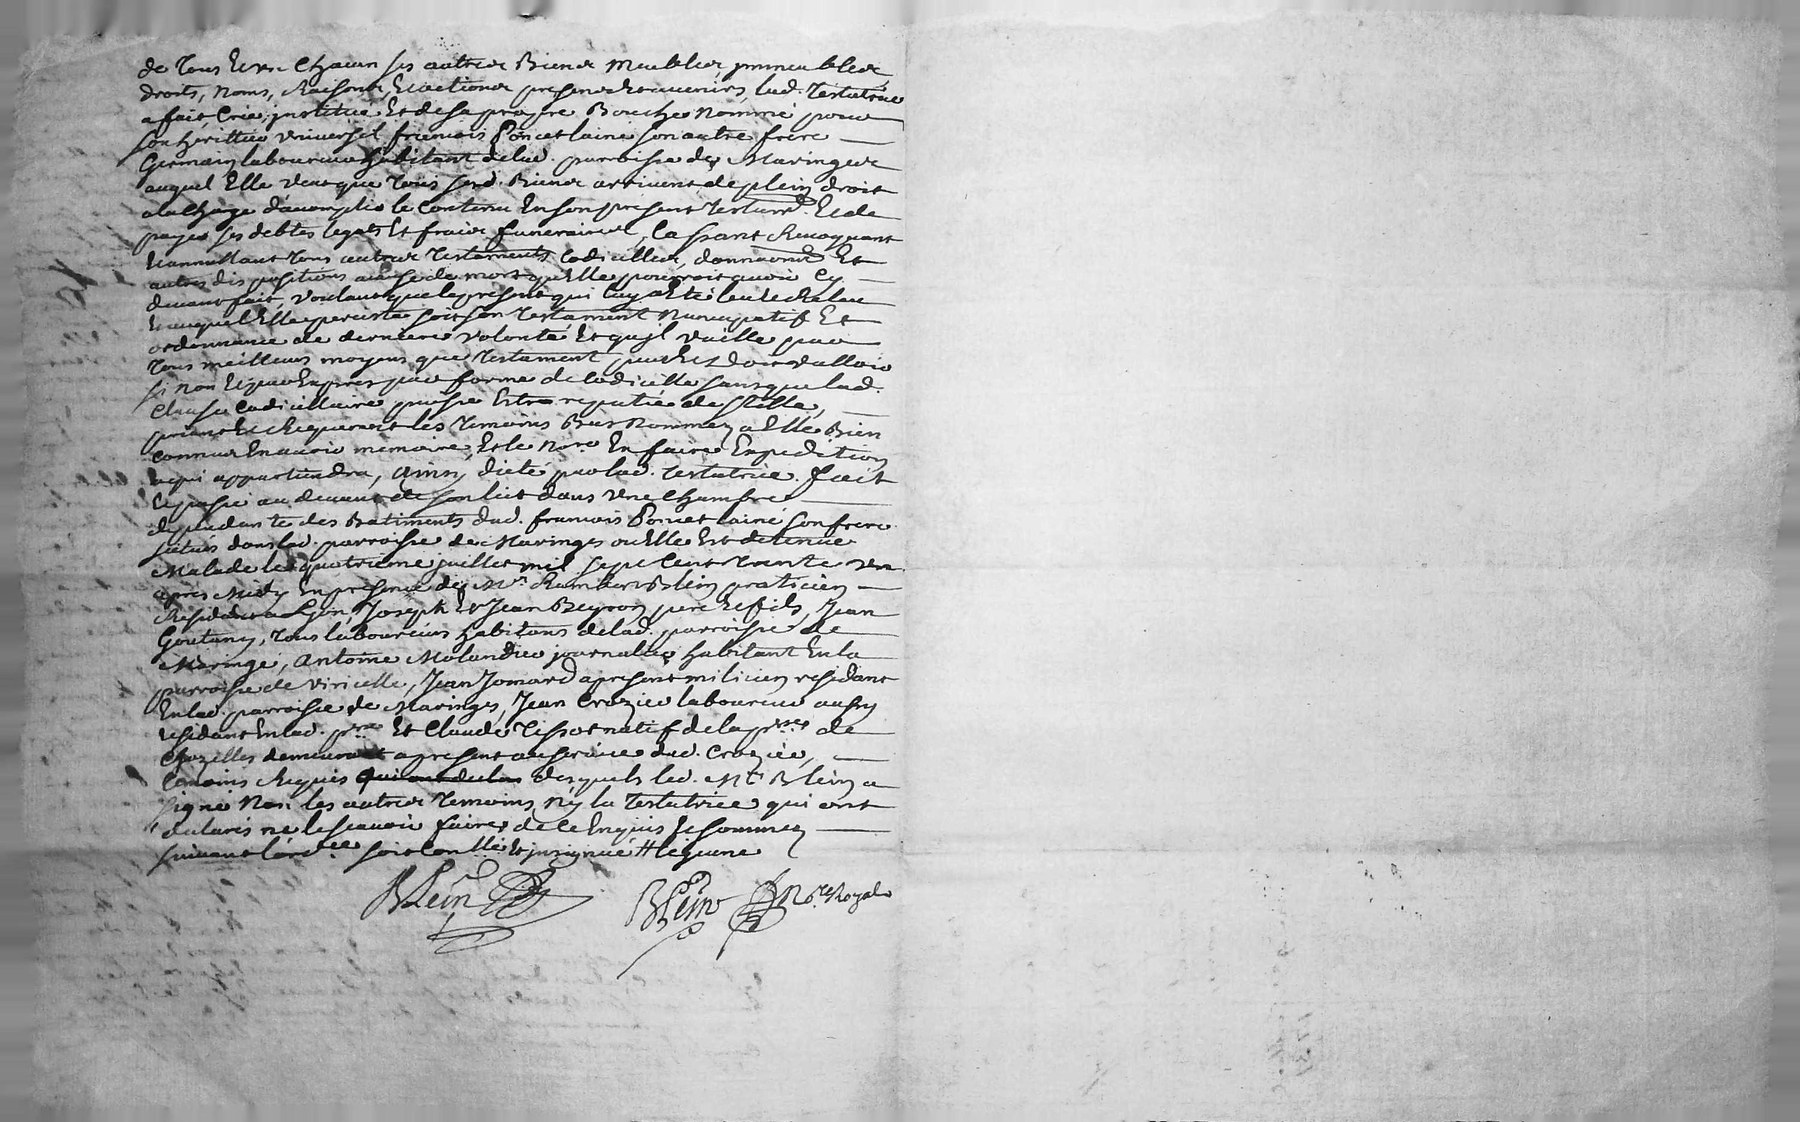 de Tous Et un Chacun ses autres Biens Meubles, immeubles
droits, Noms, Raisons, Et actions presens et avenirs, lad. Testatrice
a fait, Créé, institué Et de sa propre Bouche Nommé pour
son heritier universel francois Poncet laine son autre frere
Germain laboureur habitant de lad. parroisse de Maringes
auquel Elle veut que Tous sesd. Biens arrivent de plein droit
a la charge d'acomplir le contenu En son present Testamt. Et de
payer ses debtes legats Et fraix funeraires, Cassant Revoquant
Et annullant Tous autres Testaments Codicilles, donnaons Et
autres dispositions a cause de mort qu'Elle pourroit avoir Cy
devant fait, Voulant que le present qui luy a Eté leu Et Releu
Et auquel Elle perciste soit son Testament Nuncupatif Et
ordonnance de derniere volonté Et qu'il vaille par
Tous meilleurs moyens que Testament peut Et doit valloir
si non Et par Expres par forme de Codicille sans que lad.
Clause Codicillaire puisse Estre reputée de stille,
priant Et Requerant les Temoins Bas Nommez a Elle Bien
Connus En avoir memoire, Et le Nore. En faire Expedition
a qui appartiendra, Ainsy dicté par lad. Testatrice. Fait
Et passé au devant de son lict dans une Chambre
dependante des Batiments dud. francois Poncet lainé son frere
scitués dans lad. parroisse de Maringes ou Elle Est detenue
Malade le quatrieme juillet mil sept Cent Trente un
apres Midy En presence de Mr. Rambert Blein praticien
Residant a Lyon, Joseph Et Jean Beyron pere Et fils, Jean
Goutany, Tous laboureurs habitans de lad. parroisse de
Maringe, Antoine Molandier journallier habitant En la
parroisse de Viricelle, Jean Jomard a present milicien residant
En lad. parroisse de Maringes, Jean Crozier laboureur aussy
residant En lad. prse Et Claude Tissot natif de la prsse de
Chazelles demeurant a present au service dud. Crozier,
Temoins Requis desquels led. Mr. Blein a
signé Non les autres Temoins Ny la Testatrice qui ont
declarés ne le scavoir faire de ce Enquis Et sommez
suivant l'ordce soit Conllé Et insignué
Blein Blein Nore. Royal